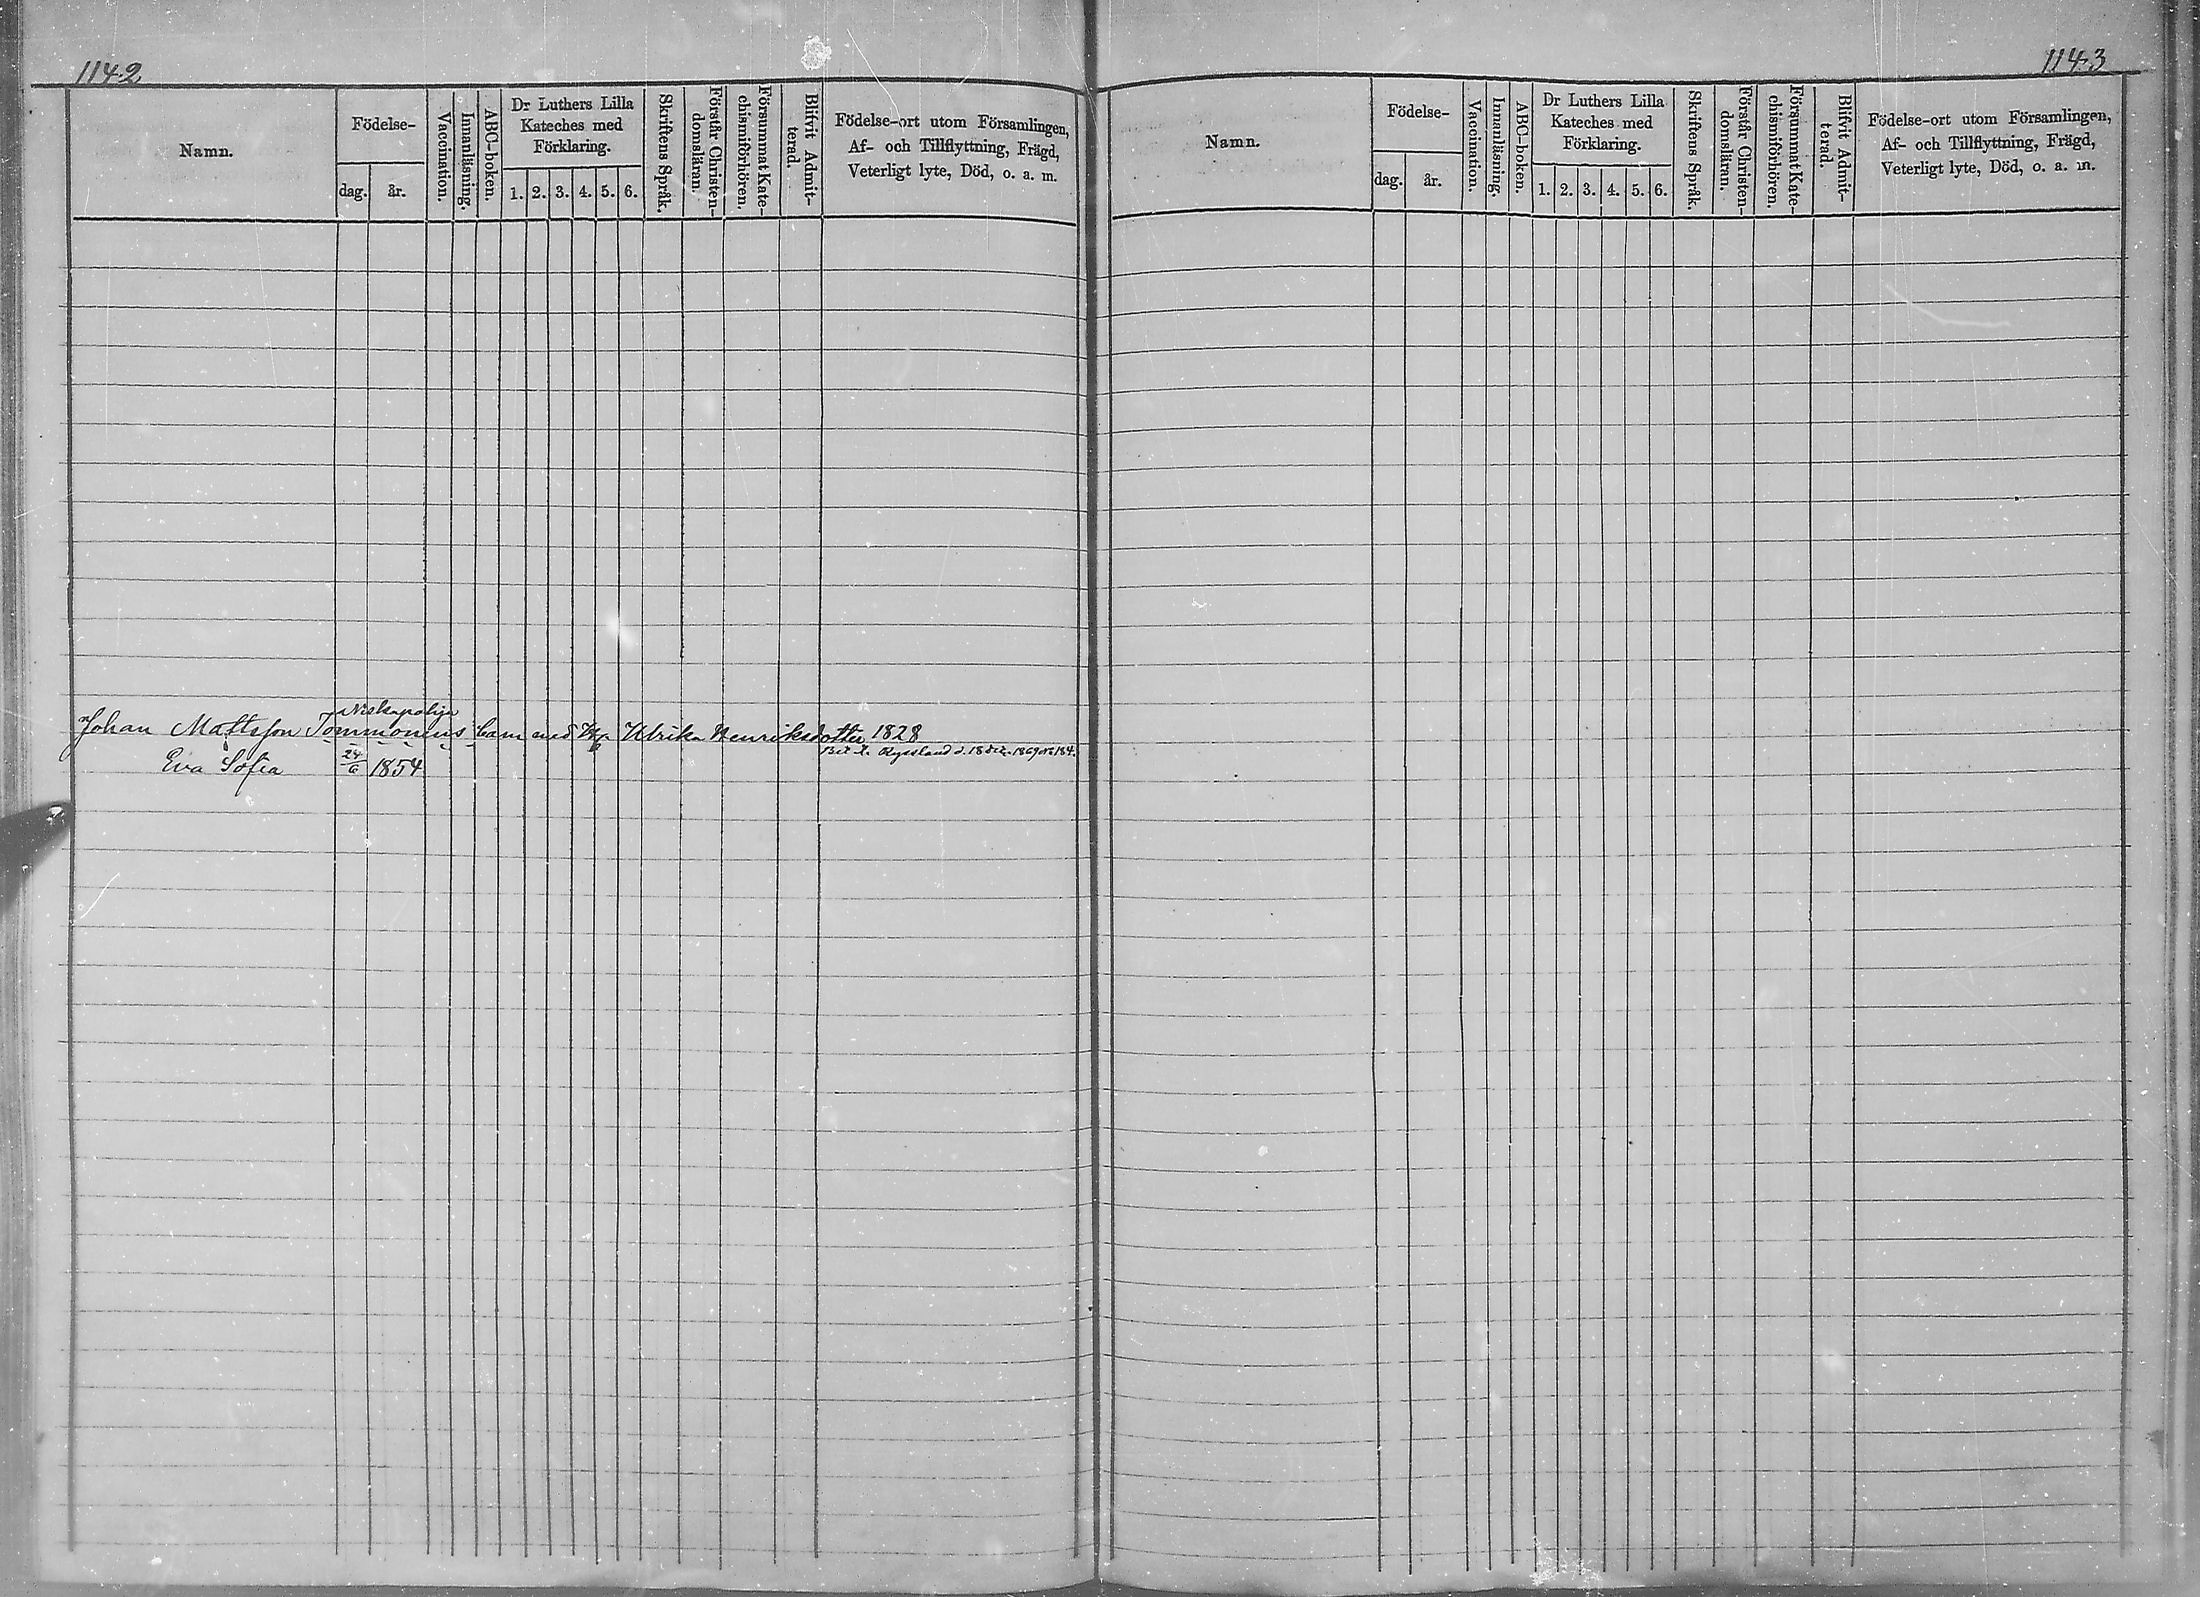 1142
Namn.
Födelse-
dag.
år.
Vaccination.
Innanläsning.
ABC-boken.
Dr Luthers Lilla
Kateches med
Förklaring.
1. 2. 3. 4. 5. 6.
Skriftens Språk.
Förstår Christen-
domsläran.
Försummat Kate-
chismiförhören.
Blifvit Admit-
terad.
Födelse-ort utom Församlingen,
Af- och Tillflyttning, Frägd,
Veterligt lyte, Död, o. a. m.
Niskapohja
Johan Mattsson Tommonens barn med Ulrika Henriksdotter 1828
Bet. t. Ryssland d. 18 1869 No 184.
Eva Sofia 24/6 1854
1143
Namn.
Födelse-
dag.
år.
Vaccination.
Innanläsning.
ABC-boken.
Dr Luthers Lilla
Kateches med
Förklaring.
1. 2. 3. 4. 5. 6.
Skriftens Språk.
Förstår Christen-
domsläran.
Försummat Kate-
chismiförhören.
Blifvit Admit-
terad.
Födelse-ort utom Församlingen,
Af- och Tillflyttning, Frägd,
Veterligt lyte, Död, o. a. m.